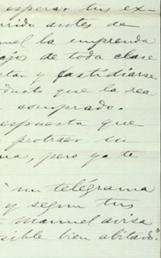 esperar tus ex
rrido antes de
uel la emprenda
ajos de toda clase
tar y fastidiarse
ducto que la rea
comprado.
respuesta que
protser su
na, pero ya te
"un telégrama
y segun tus
manuel avisa
sible bien alitado"